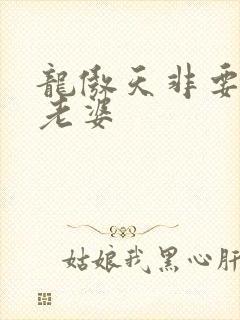 龍傲天非要
老婆
姑娘我黑心肝